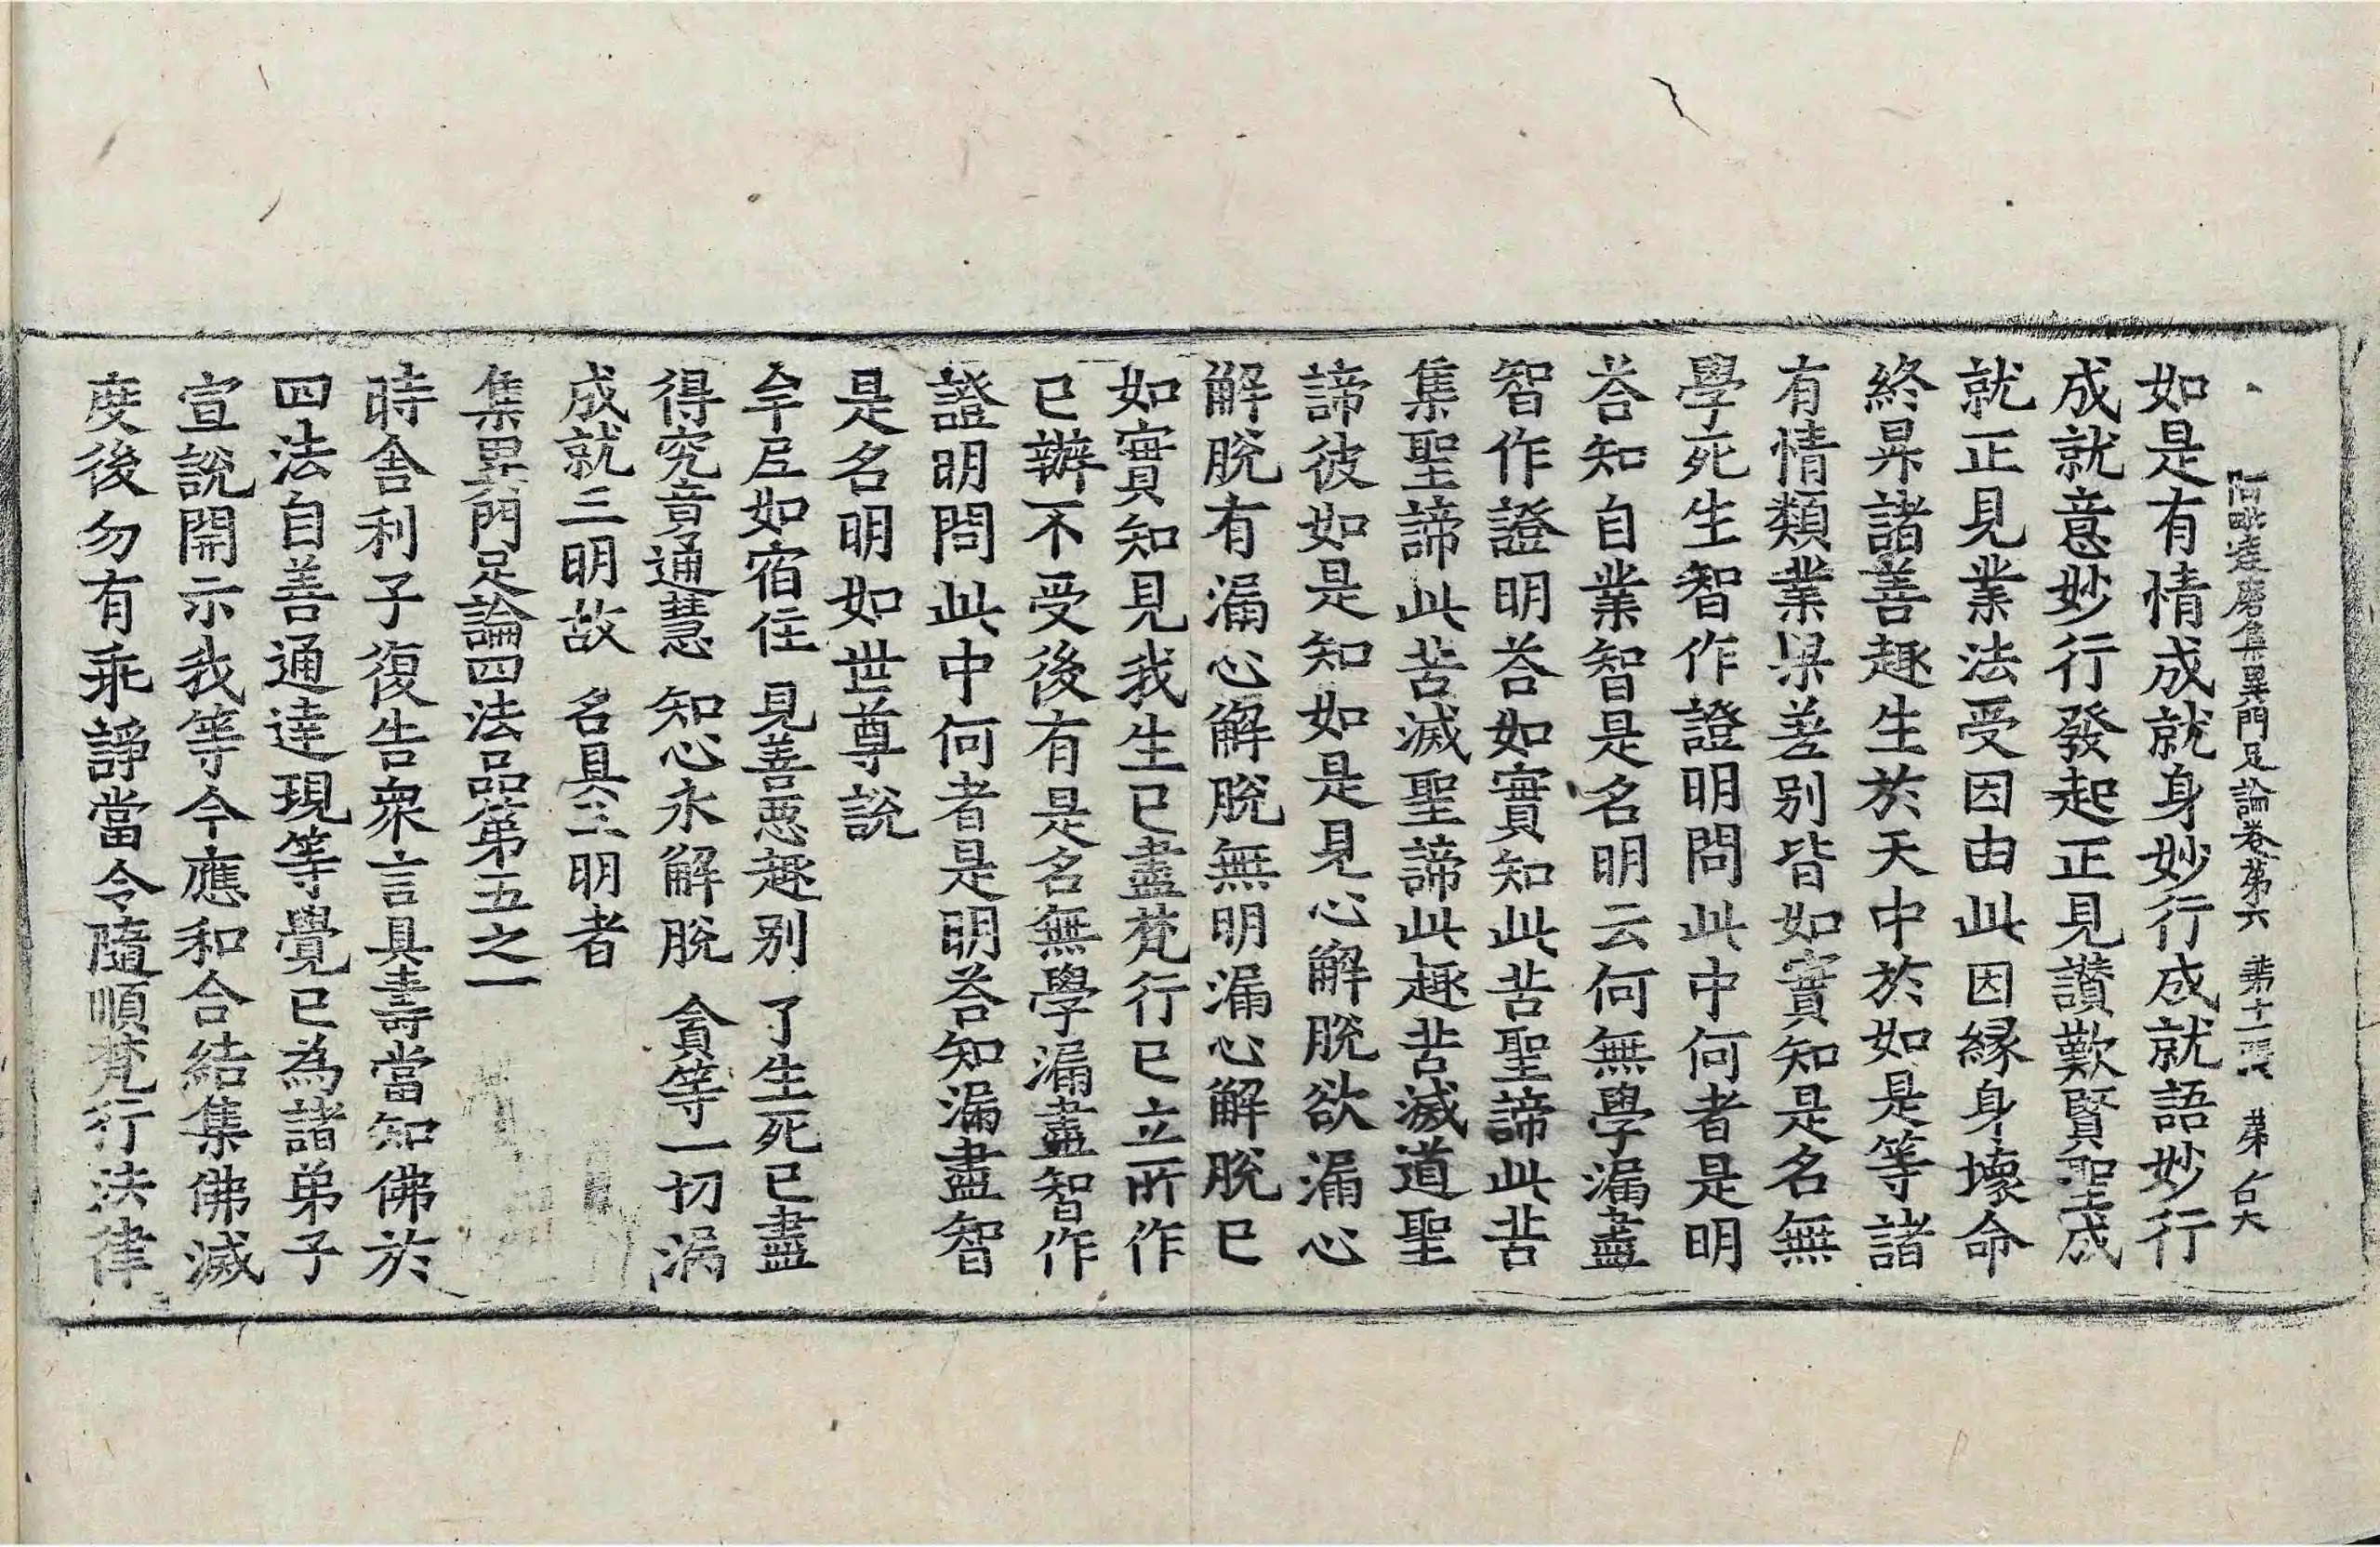 阿毗達磨集異門足論卷第六 第十一張 第
如是有情成就身妙行成就語妙行
成就意妙行發起正見讃歎賢聖成
就正見業法受因由此因緣身壞命
終昇諸善趣生於天中於如是等諸
有情類業果差別皆如實知是名無
學死生智作證明問此中何者是明
荅知自業智是名明云何無學漏盡
智作證明荅如實知此苦聖諦此苦
集聖諦此苦滅聖諦此趣苦滅道聖
諦彼如是知如是見心解脫欲漏心
解脫有漏心解脫無明漏心解脫已
如實知見我生已盡梵行已立所作
已辦不受後有是名無學漏盡智作
證明問此中何者是明荅知漏盡智
是名明如世尊說
牟尼如宿住 見善惡趣別 了生死已盡
得究竟通慧 知心永解脫 貪等一切漏
成就三明故 名具三明者
集異門足論四法品第五之一
時舍利子復告衆言具壽當知佛於
四法自善通達現等覺已為諸弟子
宣說開示我等今應和合結集佛滅
度後勿有乖諍當令隨順梵行法律